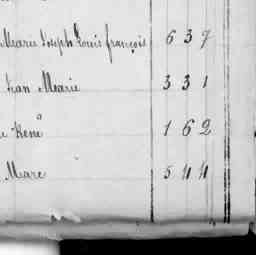 Marie Joseph Louis françois 637
Jean Marie 331
René 162
Marc 544